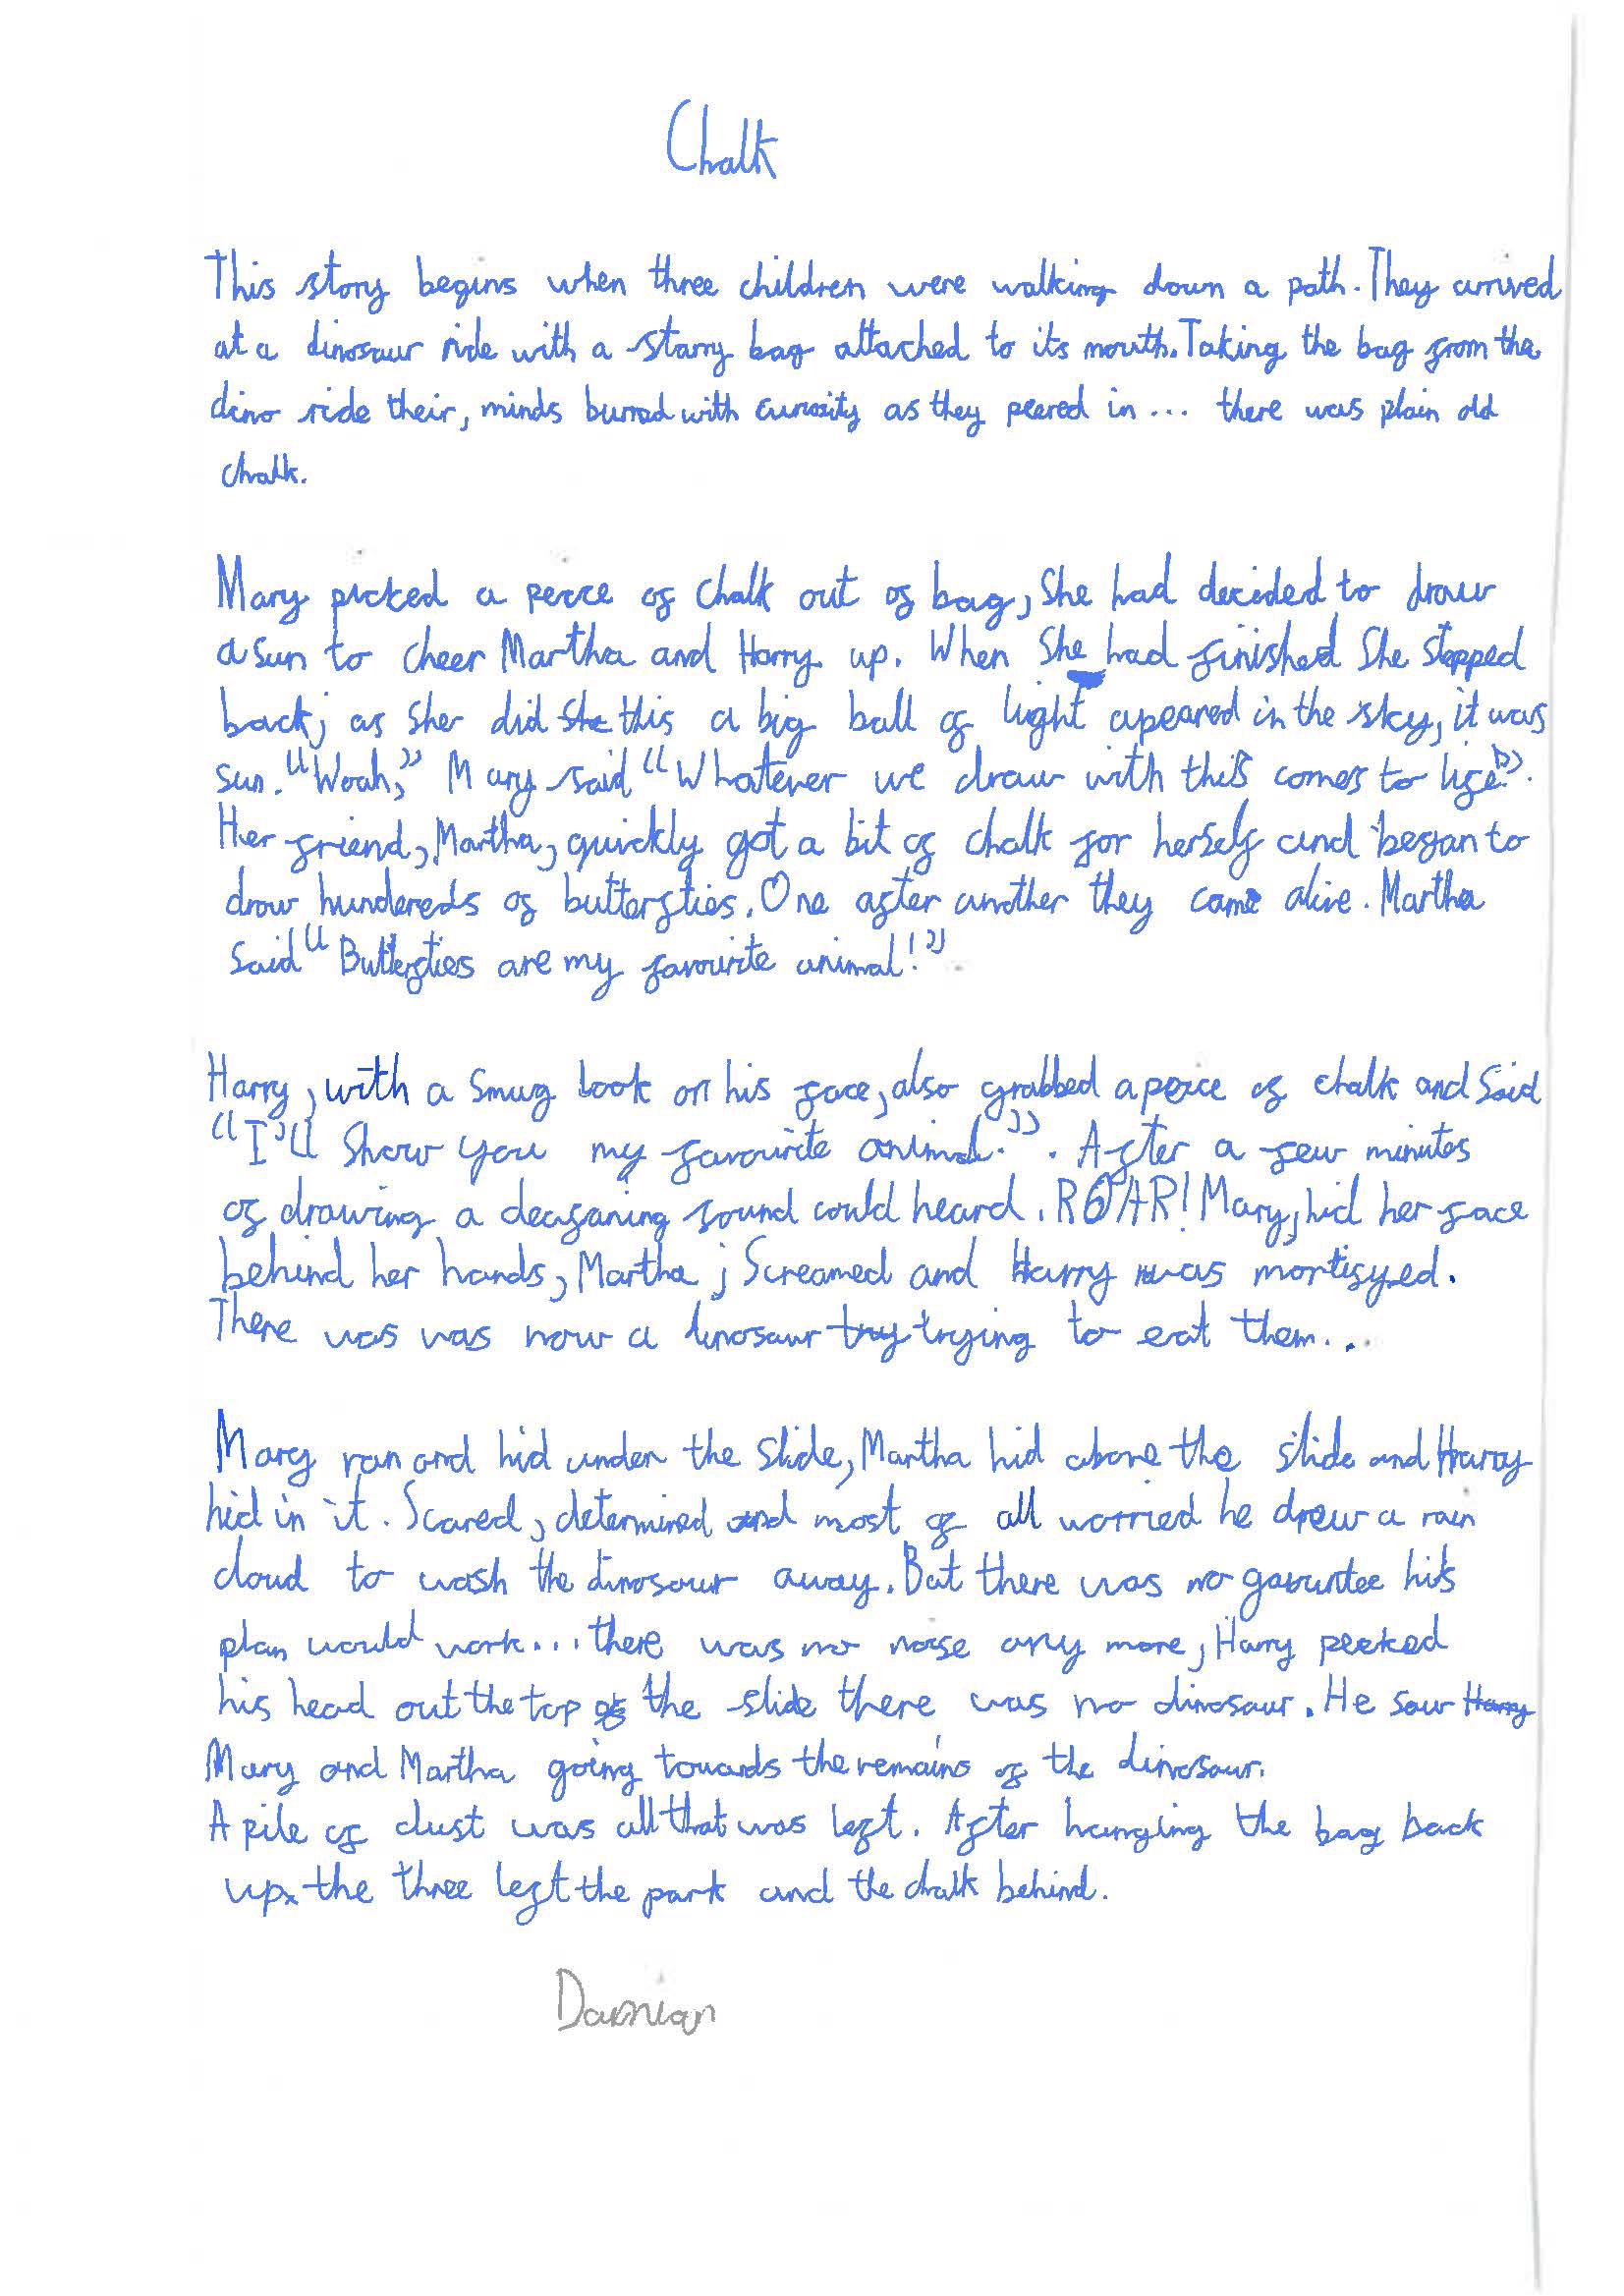 Chalk
This story begins when three children were walking down a path. They arrived
at a dinosaur ride with a starry bag attached to its mouth. Taking the bag from the
dino ride their, minds burred with curiosity as they peered in... there was plain old
chalk.
Mary picked a peice of chalk out of bag, She had decided to draw
a sun to cheer Martha and Harry up. When She had finished She stepped
back; as She did this a big ball of light apeared in the sky, it was
sun. "Woah," Mary said "Whatever we draw with this comes to life!".
Her friend, Martha, quickly got a bit of chalk for herself and began to
draw hundereds of butterflies. One after another they came alive. Martha
Said "Butterflies are my favourite animal!"
Harry, with a smug look on his face, also grabbed a peice of chalk and Said
"I'll Show you my favourite animal.". After a few minutes
of drawing a deafaning sound could heard. ROAR! Mary, hid her face
behind her hands, Martha; Screamed and Harry was mortifyed.
There was was now a dinosaur try trying to eat them...
Mary ran and hid under the slide, Martha hid above the slide and Harry
hid in it. Scared, determined and most of all worried he drew a rain
cloud to wash the dinosaur away. But there was no his
plan would work... there was no noise any more, Harry peeked
his head out the top of the slide there was no dinosaur. He saw Harry
Mary and Martha going towards the remains of the dinosaur.
A pile of dust was all that was left. After hanging the bag back
up the three left the park and the chalk behind.
Damian